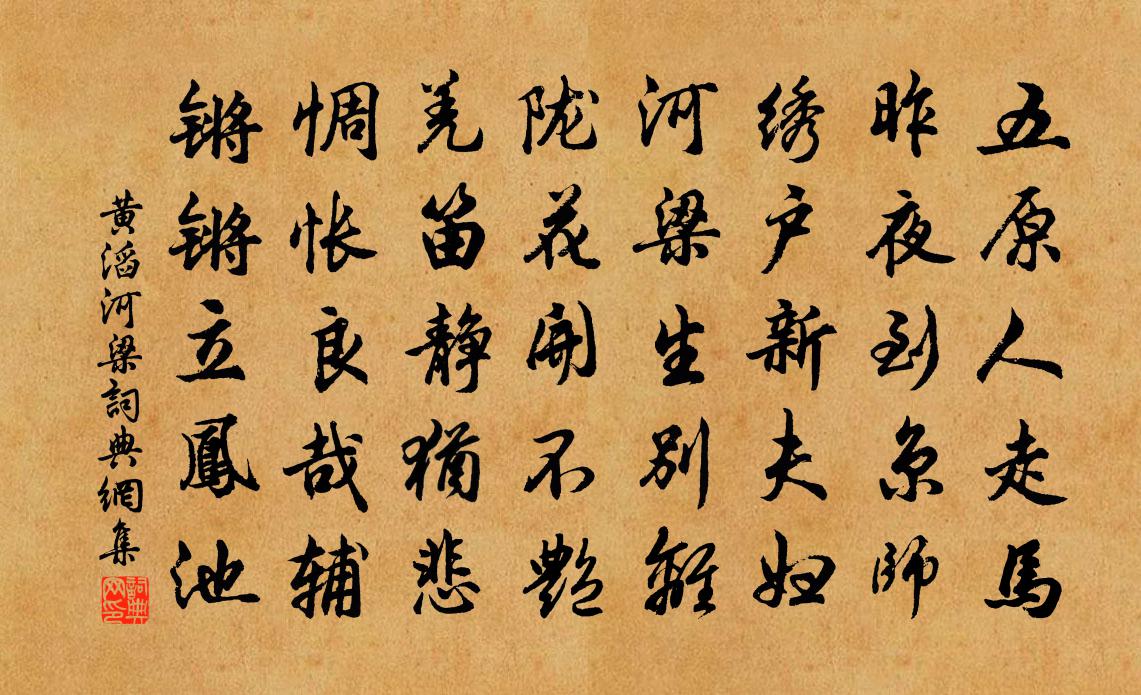 五原人走馬
昨夜到京師
绣户新夫妇
河梁生别離
陇花開不艷
羌笛静猶悲
惆怅良哉辅
锵锵立鳳池
黄滔河梁詞典網集
詞典网印